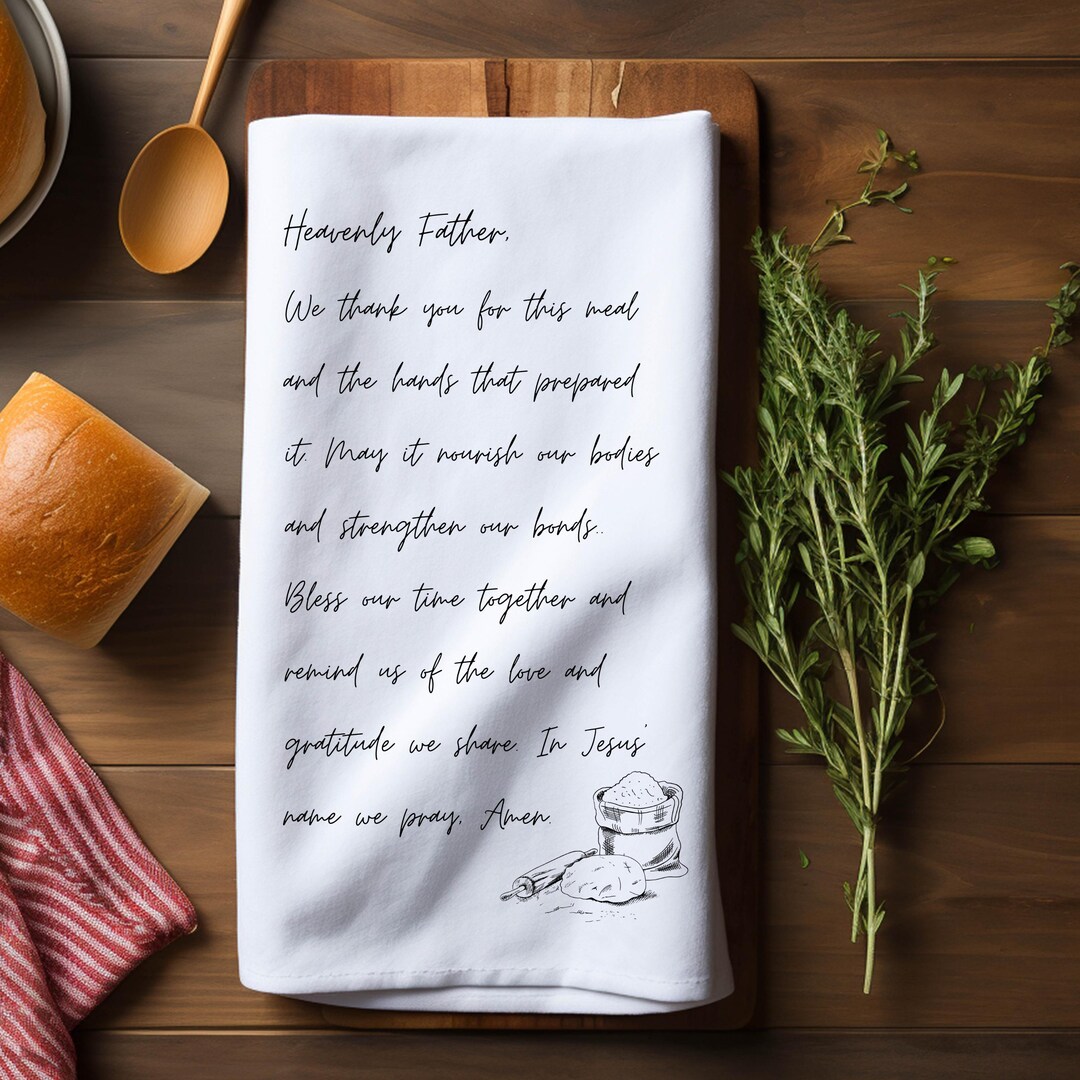 Heavenly Father,
We thank you for this meal
and the hands that prepared
it. May it nourish our bodies
and strengthen our bonds..
Bless our time together and
remind us of the love and
gratitude we share. In Jesus'
name we pray, Amen.